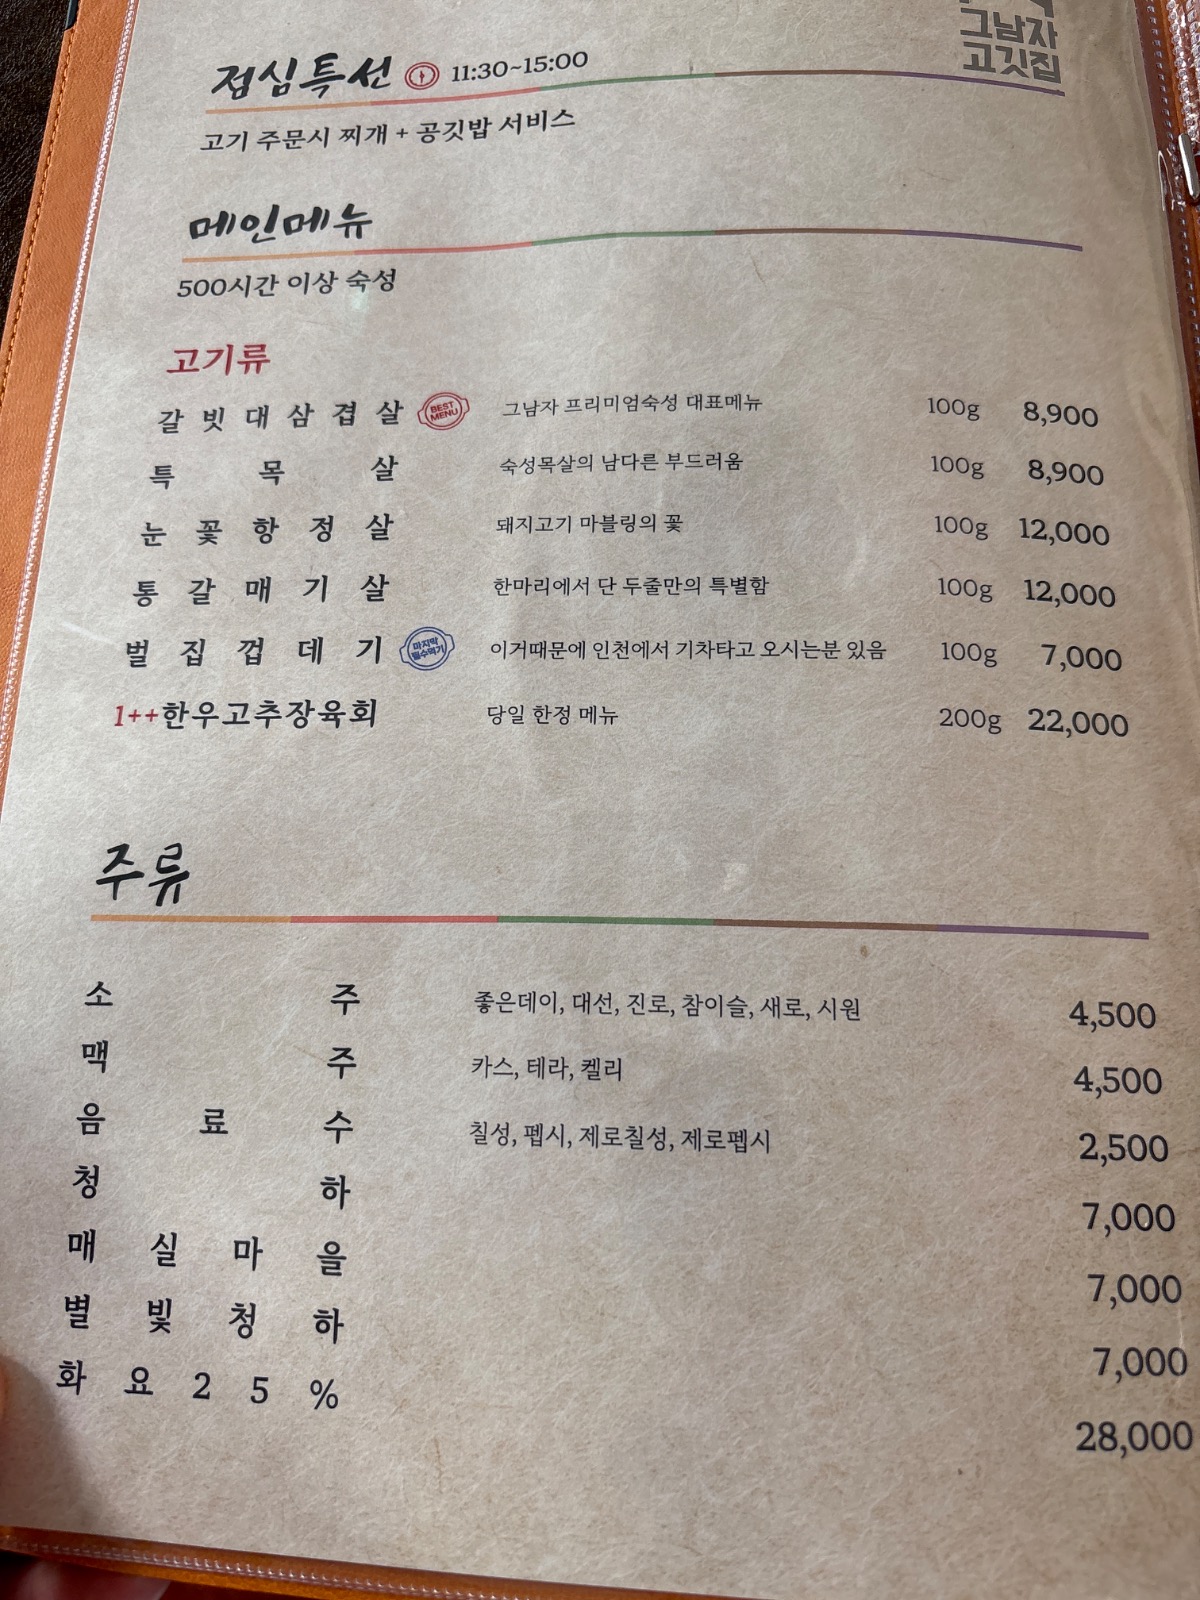 그남자
고깃집
점심특선 11:30~15:00
고기 주문시 찌개 + 공깃밥 서비스
메인메뉴
500시간 이상 숙성
고기류
갈빗대삼겹살 BEST MENU 그남자 프리미엄숙성 대표메뉴 100g 8,900
특목살 숙성목살의 남다른 부드러움 100g 8,900
눈꽃항정살 돼지고기 마블링의 꽃 100g 12,000
통갈매기살 한마리에서 단 두줄만의 특별함 100g 12,000
벌집껍데기 마지막 필수먹기 이거때문에 인천에서 기차타고 오시는분 있음 100g 7,000
1++한우고추장육회 당일 한정 메뉴 200g 22,000
주류
소주 좋은데이, 대선, 진로, 참이슬, 새로, 시원 4,500
맥주 카스, 테라, 켈리 4,500
음료수 칠성, 펩시, 제로칠성, 제로펩시 2,500
청하 7,000
매실마을 7,000
별빛청하 7,000
화요25% 28,000